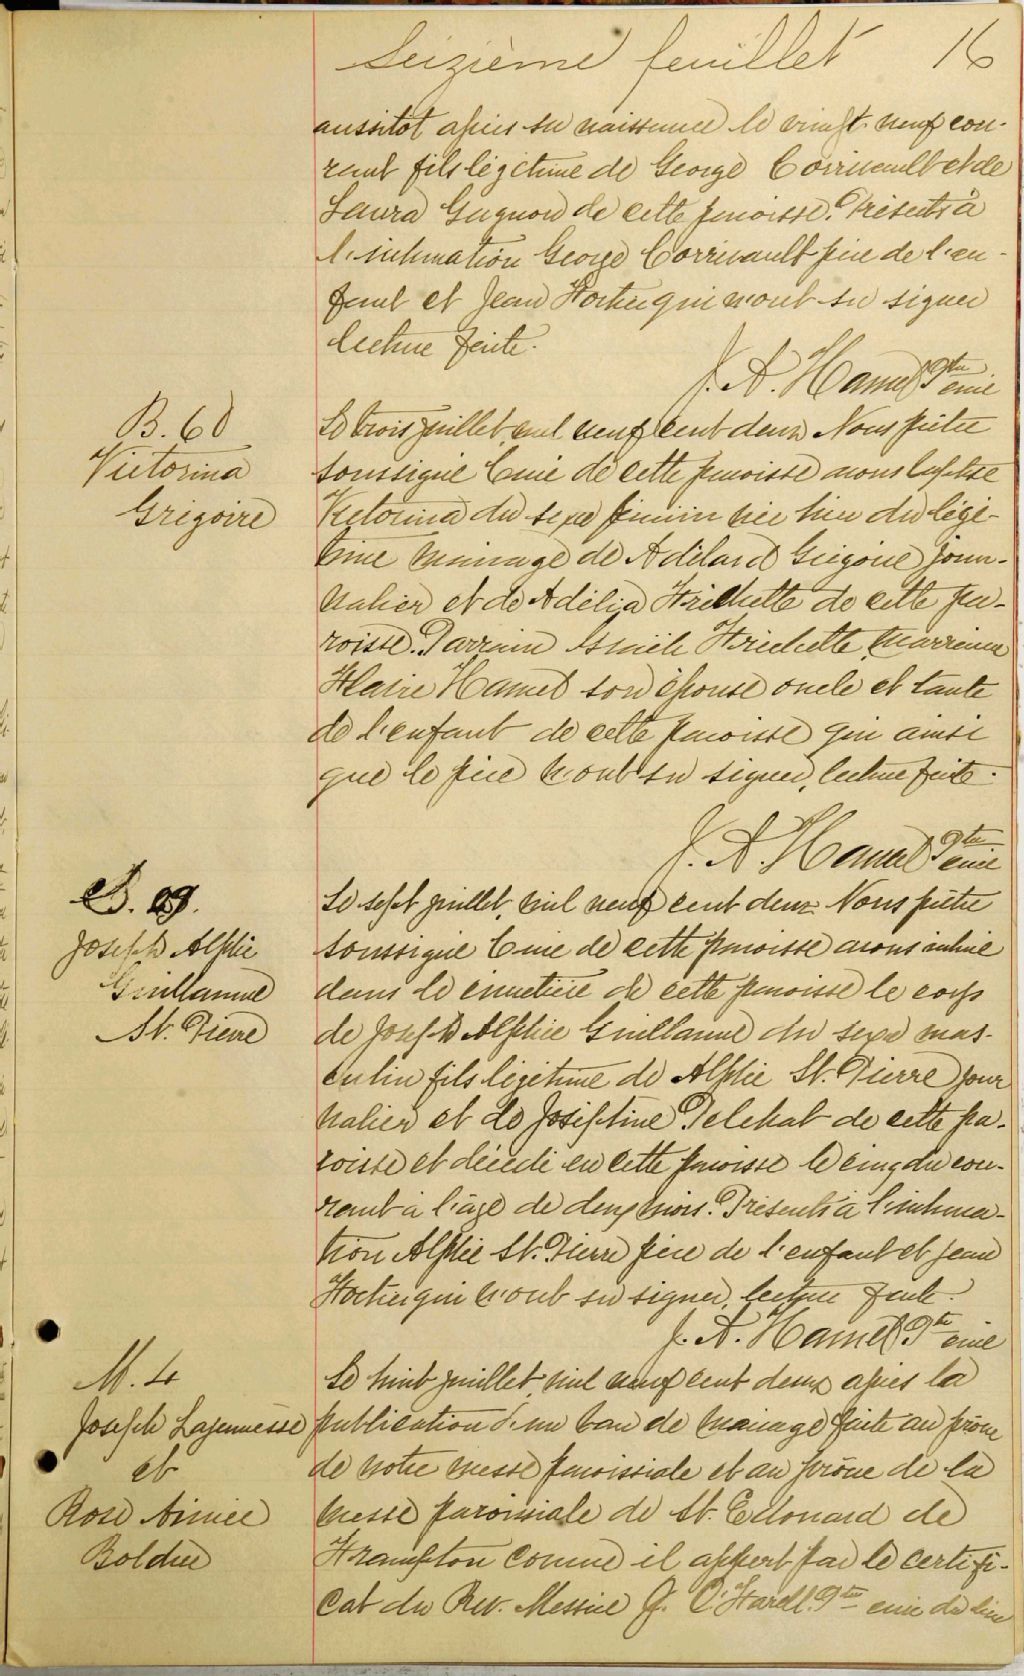 Seizième feuillet 16
aussitot après sa naissance le vingt neuf cou-
rant fils légitime de George Corrivault et de
Laura Gagnon de cette paroisse. Présents à
l'inhumation George Corrivault père de l'en-
fant et Jean Fortier qui n'ont su signer
lecture faite.
J. A. Hamel Ptre curé
B. 60
Victorina
Grégoire
Le trois juillet, mil neuf cent deux Nous prêtre
soussigné Curé de cette paroisse avons baptisé
Victorina du sexe féminin née hier du légi-
time mariage de Adélard Grégoire jour-
nalier et de Adélia Frechette de cette pa-
roisse. Parrain Frechette, marraine
Hamel son épouse oncle et tante
de l'enfant de cette paroisse qui ainsi
que le père n'ont su signer, lecture faite.
J. A. Hamel Ptre curé
S. 29.
Joseph Alphie
Guillaume
St. Pierre
Le sept juillet, mil neuf cent deux Nous prêtre
soussigné Curé de cette paroisse avons inhumé
dans le cimetière de cette paroisse le corps
de Joseph Alphie Guillaume du sexe mas-
culin fils légitime de Alphie St. Pierre jour
nalier et de Joséphine Pelchat de cette pa-
roisse et décédé en cette paroisse le cinq du cou-
rant à l'âge de deux mois. Présents à l'inhuma-
tion Alphie St. Pierre père de l'enfant et Jean
Fortier qui n'ont su signer, lecture faite.
J. A. Hamel Ptre curé
M. 4
Joseph Lajeunesse
et
Rose Aimée
Bolduc
Le huit juillet, mil neuf cent deux après la
publication d'un ban de mariage faite au prône
de notre messe paroissiale et au prône de la
messe paroissiale de St. Edouard de
Frampton comme il appert par le certifi-
cat du Rev. Messire J. O'Farell. Ptre curé du lieu